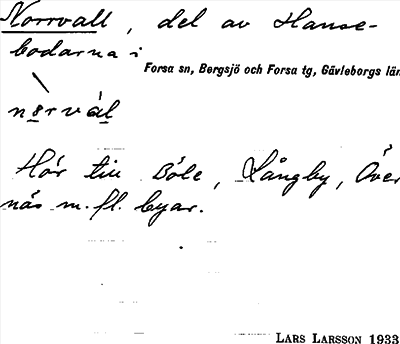 Norrvall, del av Hanse-
bodarna i
Forsa sn, Bergsjö och Forsa tg, Gävleborgs län
Hör till Böle, Långby, Över
näs m. fl. byar.
LARS LARSSON 1933